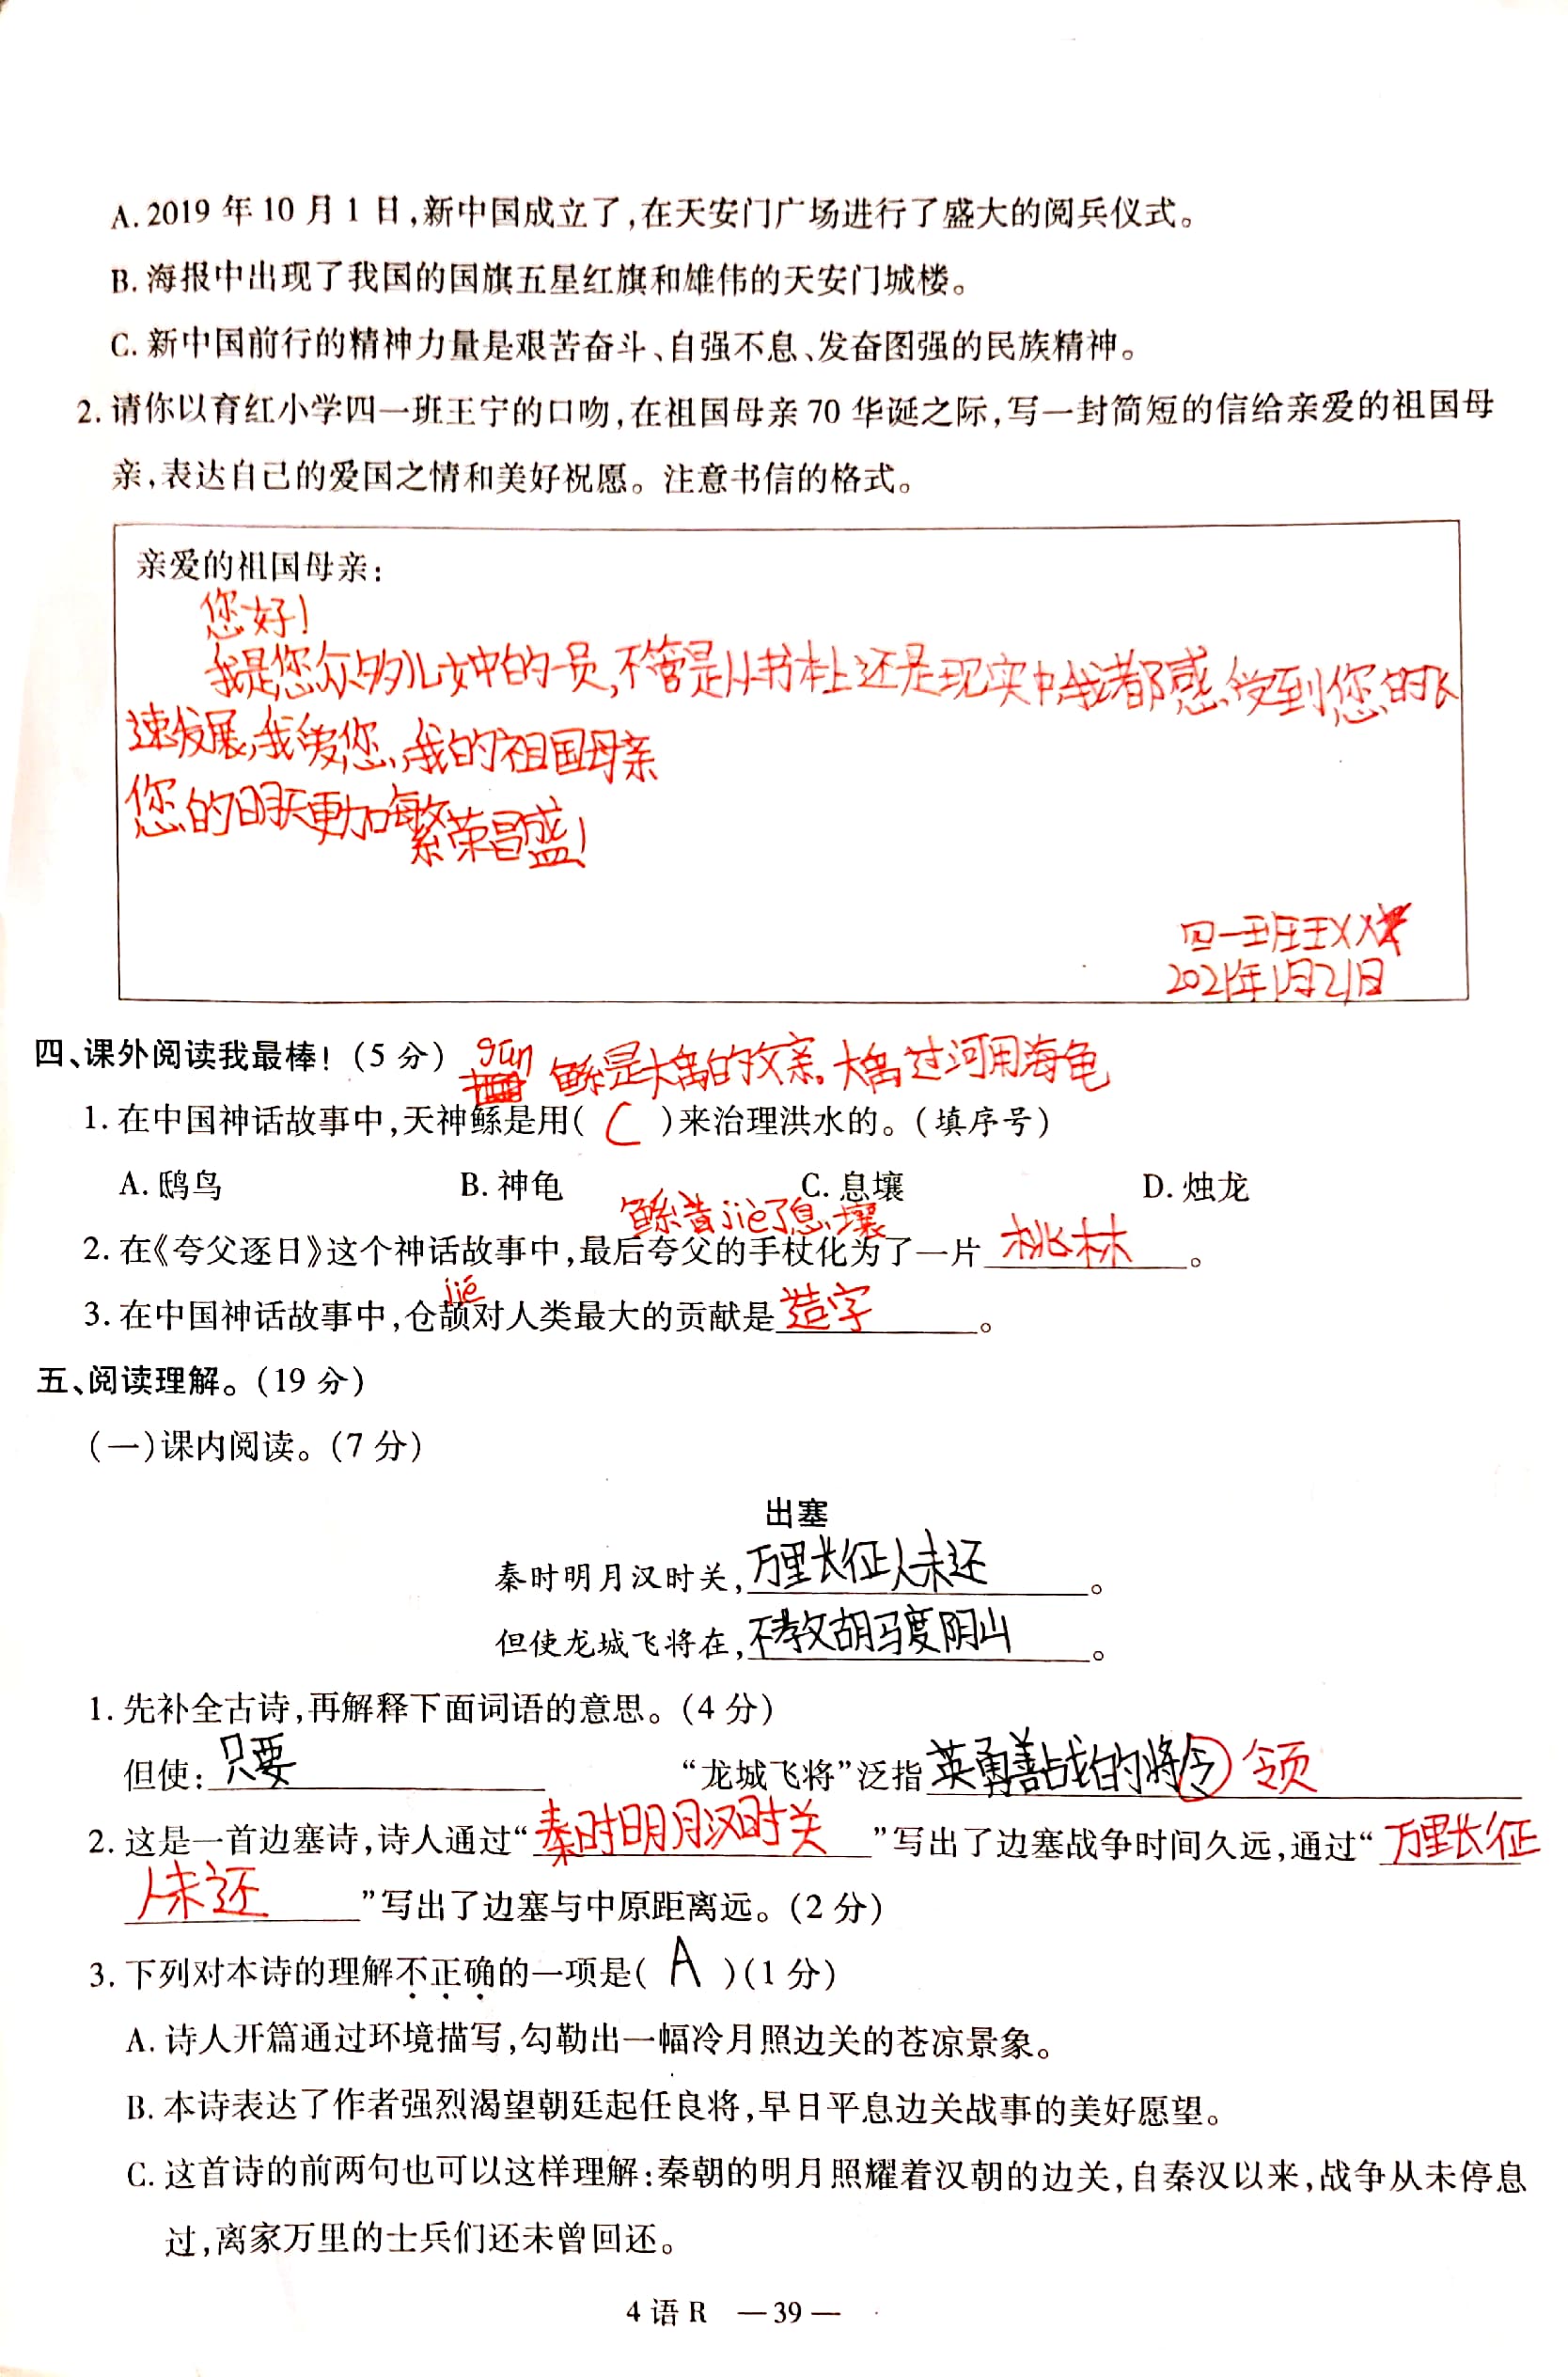 A. 2019 年 10 月 1 日,新中国成立了,在天安门广场进行了盛大的阅兵仪式。
B. 海报中出现了我国的国旗五星红旗和雄伟的天安门城楼。
C. 新中国前行的精神力量是艰苦奋斗、自强不息、发奋图强的民族精神。
2. 请你以育红小学四一班王宁的口吻,在祖国母亲 70 华诞之际,写一封简短的信给亲爱的祖国母
亲,表达自己的爱国之情和美好祝愿。注意书信的格式。
亲爱的祖国母亲:
您好!
我是您众多儿女中的一员,不管是从书本上还是现实中,我都感受到您的飞
速发展,我爱您,我的祖国母亲
您的明天更加繁荣昌盛!
四一班王XX
2021年1月21日
四、课外阅读我最棒!(5 分)
gǔn 鲧是大禹的父亲。大禹过河用海龟
1. 在中国神话故事中,天神鲧是用( C )来治理洪水的。(填序号)
A. 鸱鸟 B. 神龟 C. 息壤 D. 烛龙
鲧昔jiè了息壤
2. 在《夸父逐日》这个神话故事中,最后夸父的手杖化为了一片桃林。
jié
3. 在中国神话故事中,仓颉对人类最大的贡献是造字。
五、阅读理解。(19 分)
(一)课内阅读。(7 分)
出塞
秦时明月汉时关,万里长征人未还。
但使龙城飞将在,不教胡马度阴山。
1. 先补全古诗,再解释下面词语的意思。(4 分)
但使:只要 “龙城飞将”泛指英勇善战的将令 领
2. 这是一首边塞诗,诗人通过“秦时明月汉时关”写出了边塞战争时间久远,通过“万里长征
人未还”写出了边塞与中原距离远。(2 分)
3. 下列对本诗的理解不正确的一项是( A )(1 分)
A. 诗人开篇通过环境描写,勾勒出一幅冷月照边关的苍凉景象。
B. 本诗表达了作者强烈渴望朝廷起任良将,早日平息边关战事的美好愿望。
C. 这首诗的前两句也可以这样理解:秦朝的明月照耀着汉朝的边关,自秦汉以来,战争从未停息
过,离家万里的士兵们还未曾回还。
4 语 R —39—